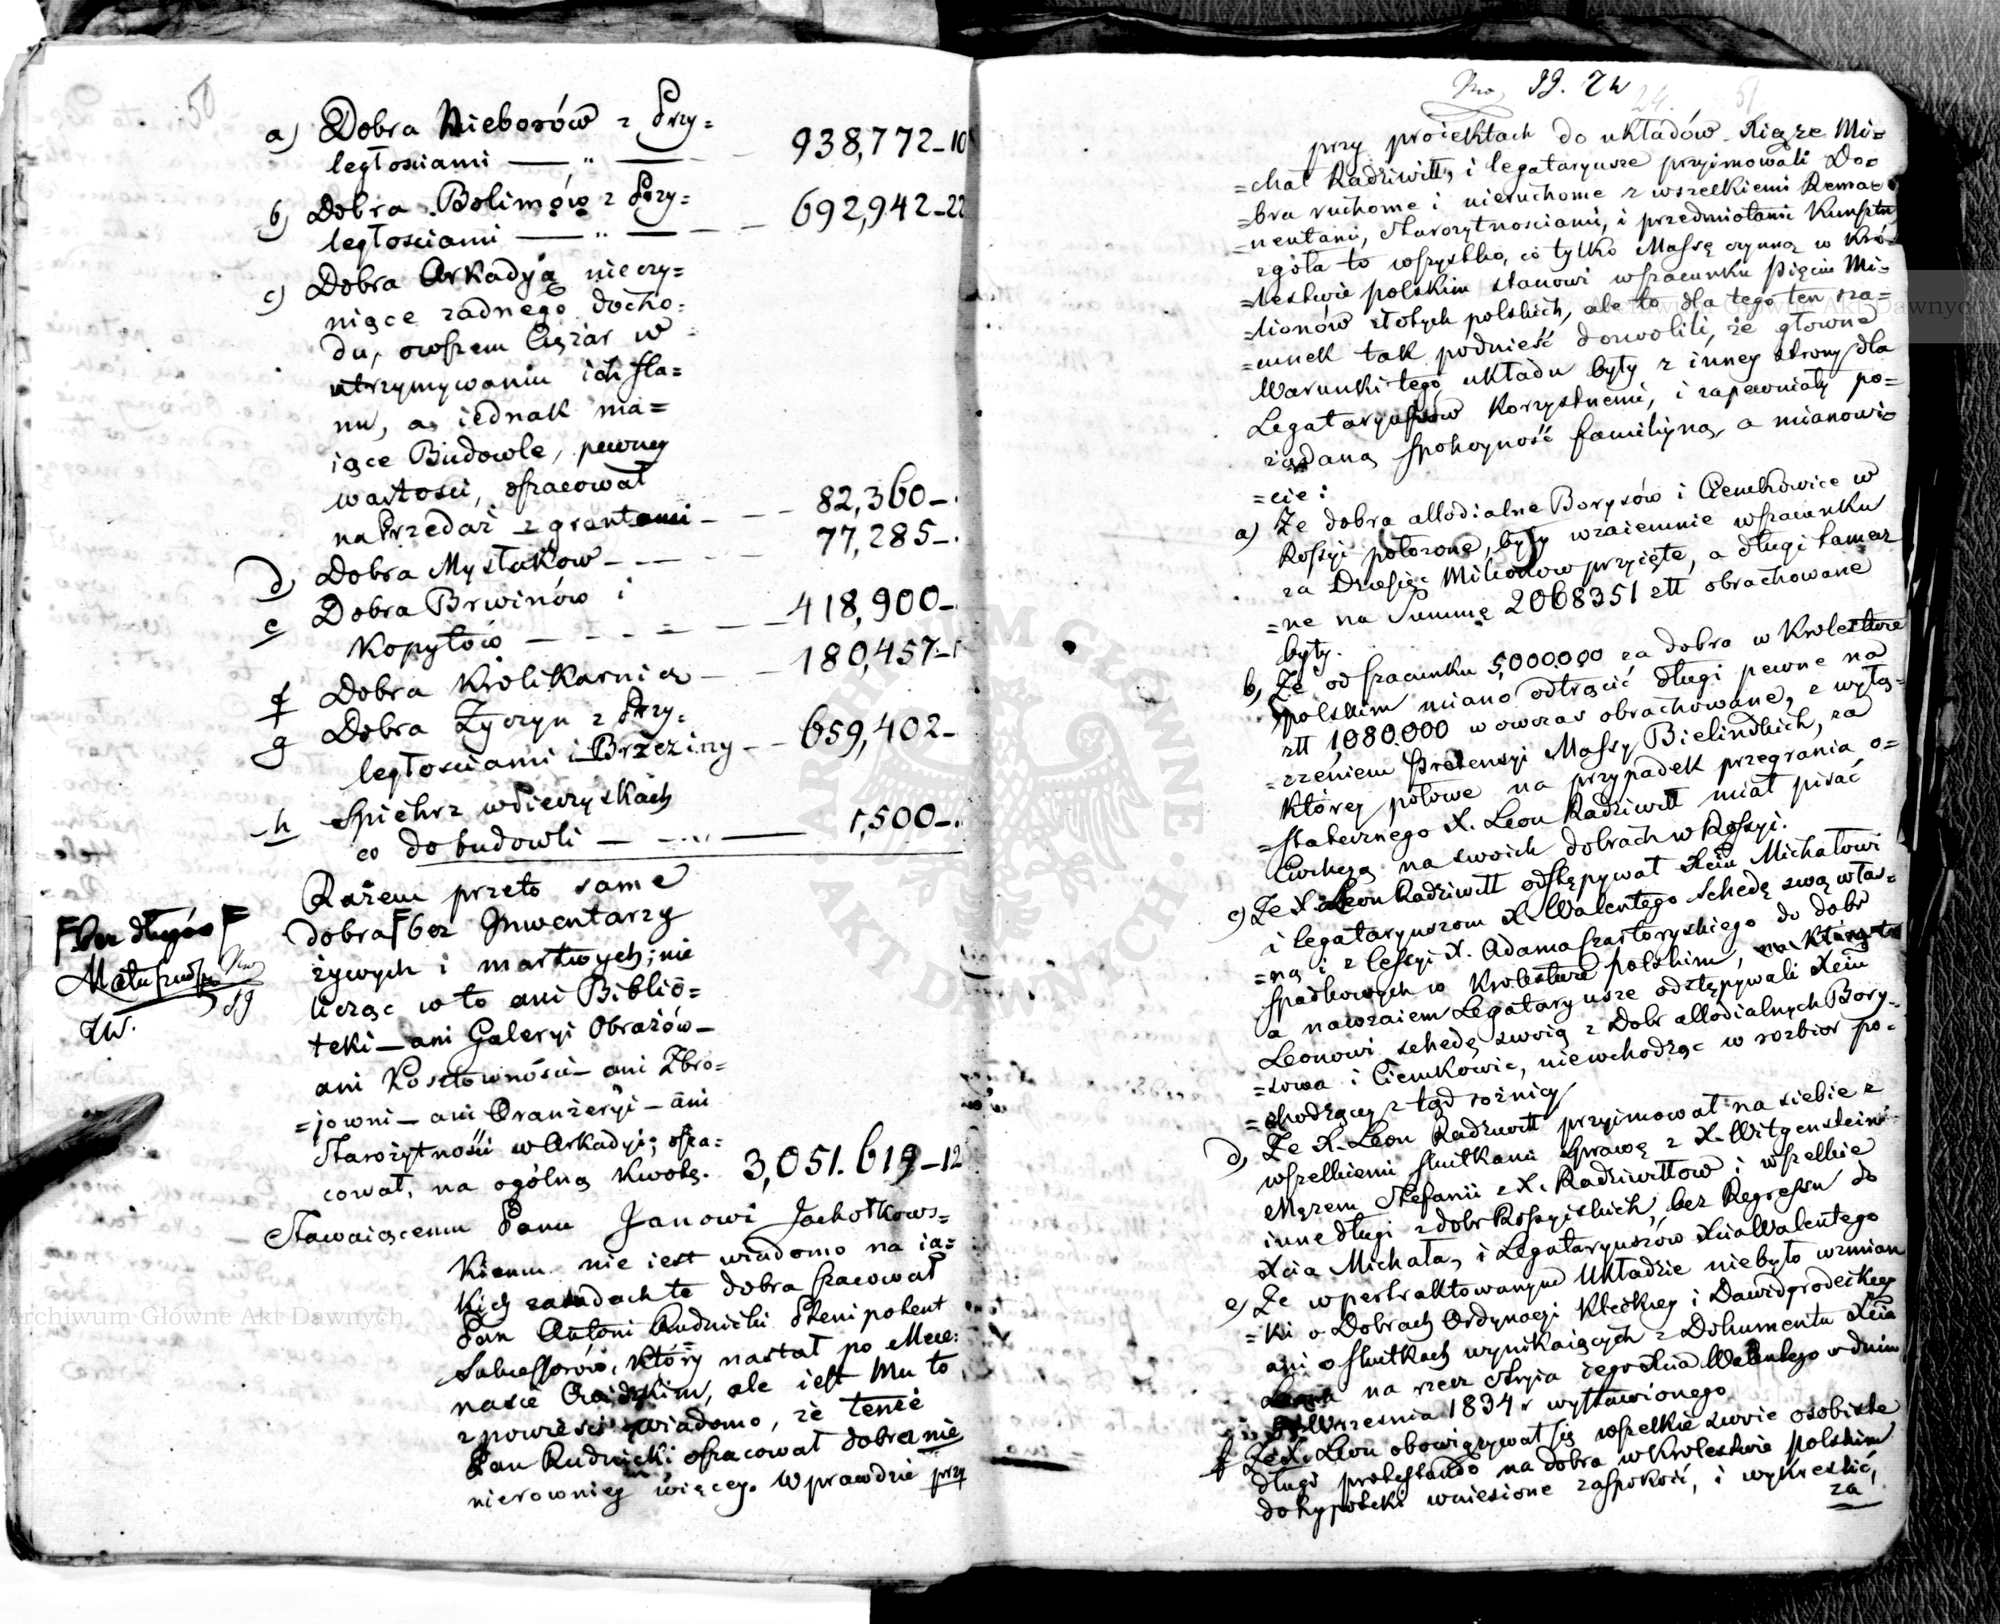 50
a) Dobra Nieborów z Przy=
ległosciami — „ — 938,772–10
b) Dobra Bolimów z Przy=
ległosciami — „ — 692,942–22
c) Dobra Arkadyą nieczy=
niące żadnego docho=
du, owszem Ciężar w
utrzymywaniu ich sta=
nu, a, iednak ma=
iące Budowle, pewney
wartości, oszacował
na Przedaż z gruntami — 82,360–.
d) Dobra Mysłaków — 77,285–.
e Dobra Brwinów i
Kopytów — 418,900–
f Dobra Królikarnia — 180,457–
g Dobra Życzyn z Przy=
ległosciami i Brzeziny — 659,402–
h Spichrz w Łieczyskach
co do budowli — 1,500–.
Razem przeto same
dobra F bez Inwentarzy
żywych i martwych; nie
licząc w to ani Biblio=
teki — ani Galeryi Obrazów —
ani Kosztowności — ani Zbro=
=jowni — ani Oranżeryi — ani
Starożytności w Arkadyi; osza=
cował, na ogólną kwotę. 3,051.619–12
F bez długów F
Matuszewski
Stawaiącemu Panu Janowi Jachołkows=
kiemu nie iest wiadomo na ia=
kich zasadach te dobra szacował
Pan Antoni Rudnicki Plenipotent
Sukcessorów, który nastał po Mece=
nasie, ale iest Mu to
z powieści wiadomo, że tenże
Pan Rudnicki oszacował dobra nie
nierowniey więcey. Wprawdzie przy
24. 51
przy proiektach do układów Xiąże Mi=
=chał Radziwiłł, i legataryusze przyimowali Do=
=bra ruchome i nieruchome z wszelkiemi Rema=
=nentami, starożytnosciami, i przedmiotami Kunsztu
zgoła to wszystko, co tylko Massę czynną w Kró=
=lestwie polskim stanowi w szacunku Pięciu Mi=
=lionów złotych polskich, ale to dla tego ten sza=
=cunek tak podnieść dozwolili, że głowne
Warunki tego układu były z inney strony dla
Legataryuszów korzystnemi, i zapewniały po=
żądaną spokoyność familiyną, a mianowi=
=cie:
a) Że dobra allodialne Borysów i Ciemkowice w
Rossyi położone, były wzaiemnie w szacunku
za Dziesięć Milionow przyięte, a długi tamecz
=ne na Summę 2068351 złł obrachowane
były.
b) Że od szacunku 5,000.000 za dobra w Krolestwie
polskim miano odtrącić długi pewne na
złł 1,080.000 wowczas obrachowane, z wyłą=
=czeniem Pretensyi Massy Bielinskich, za
którey połowę na przypadek przegrania o=
=statecznego X. Leon Radziwiłł miał pisać
Ewikcyą na swoich dobrach w Rossyi.
c) Że X. Leon Radziwiłł odstępywał Xciu Michałowi
i legataryuszom X. Walentego schedę swą włas=
=ną i z cessyi X. Adama Czartoryskiego do dobr
spadkowych w Krolestwie polskim,
a nawzaiem Legataryusze odstępywali Xciu
Leonowi schedę swoią z Dobr allodialnych Bory=
=sowa i Ciemkowic, niewchodząc w rozbior po=
=chodzącey z tąd rożnicy
d) Że X. Leon Radziwiłł przyimował na siebie z
wszelkiemi skutkami Sprawę z X. Witgensteinem
Mężem Stefanii z X. Radziwiłłow i wszelkie
inne długi z dobr Rossyiskich, bez Regressu do
Xcia Michała, i Legataryuszów Xcia Walentego
e) Że w pertraktowanym Układzie niebyło wzmian
=ki o Dobrach Ordynacyi Kleckiey i Dawidgrodeckiey
ani o skutkach wynikaiących z Dokumentu Xcia
Leona na rzecz Stryia iego Xcia Walentego w dniu
Września 1834 r wystawionego
f Że X. Leon obowiązywał się wszelkie swoie osobiste
długi protestando na dobra w Krolestwie polskim
do hypoteki wniesione zaspokoić, i wykreślić,
za
ARCHIWUM GŁÓWNE AKT DAWNYCH
Archiwum Główne Akt Dawnych
Archiwum Główne Akt Dawnych